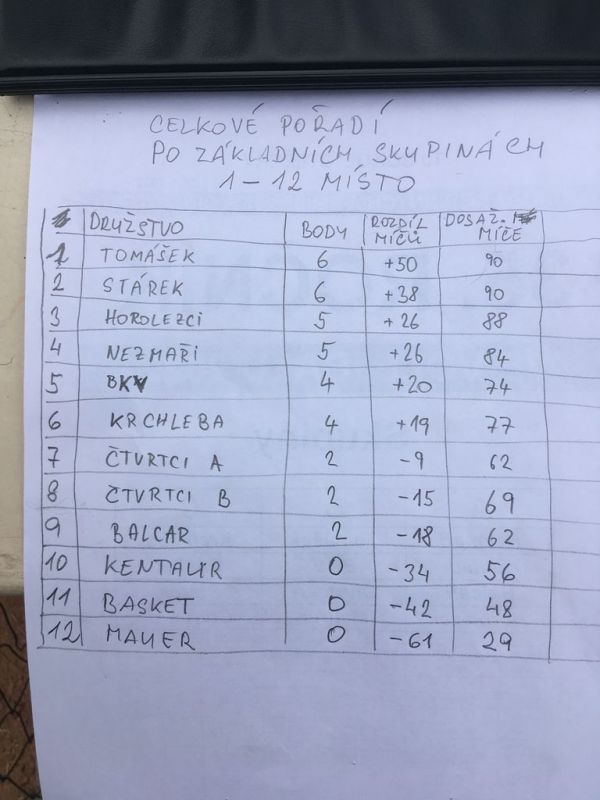 CELKOVÉ POŘADÍ
PO ZÁKLADNÍCH SKUPINÁCH
1-12 MÍSTO
DRUŽSTVO BODY ROZDÍL MÍČŮ DOSAŽ. MÍČE
1 TOMÁŠEK 6 +50 90
2 STÁREK 6 +38 90
3 HOROLEZCI 5 +26 88
4 NEZMAŘI 5 +26 84
5 BKV 4 +20 74
6 KRCHLEBA 4 +19 77
7 ČTVRTCI A 2 -9 62
8 ČTVRTCI B 2 -15 69
9 BALCAR 2 -18 62
10 KENTAUR 0 -34 56
11 BASKET 0 -42 48
12 MAUER 0 -61 29